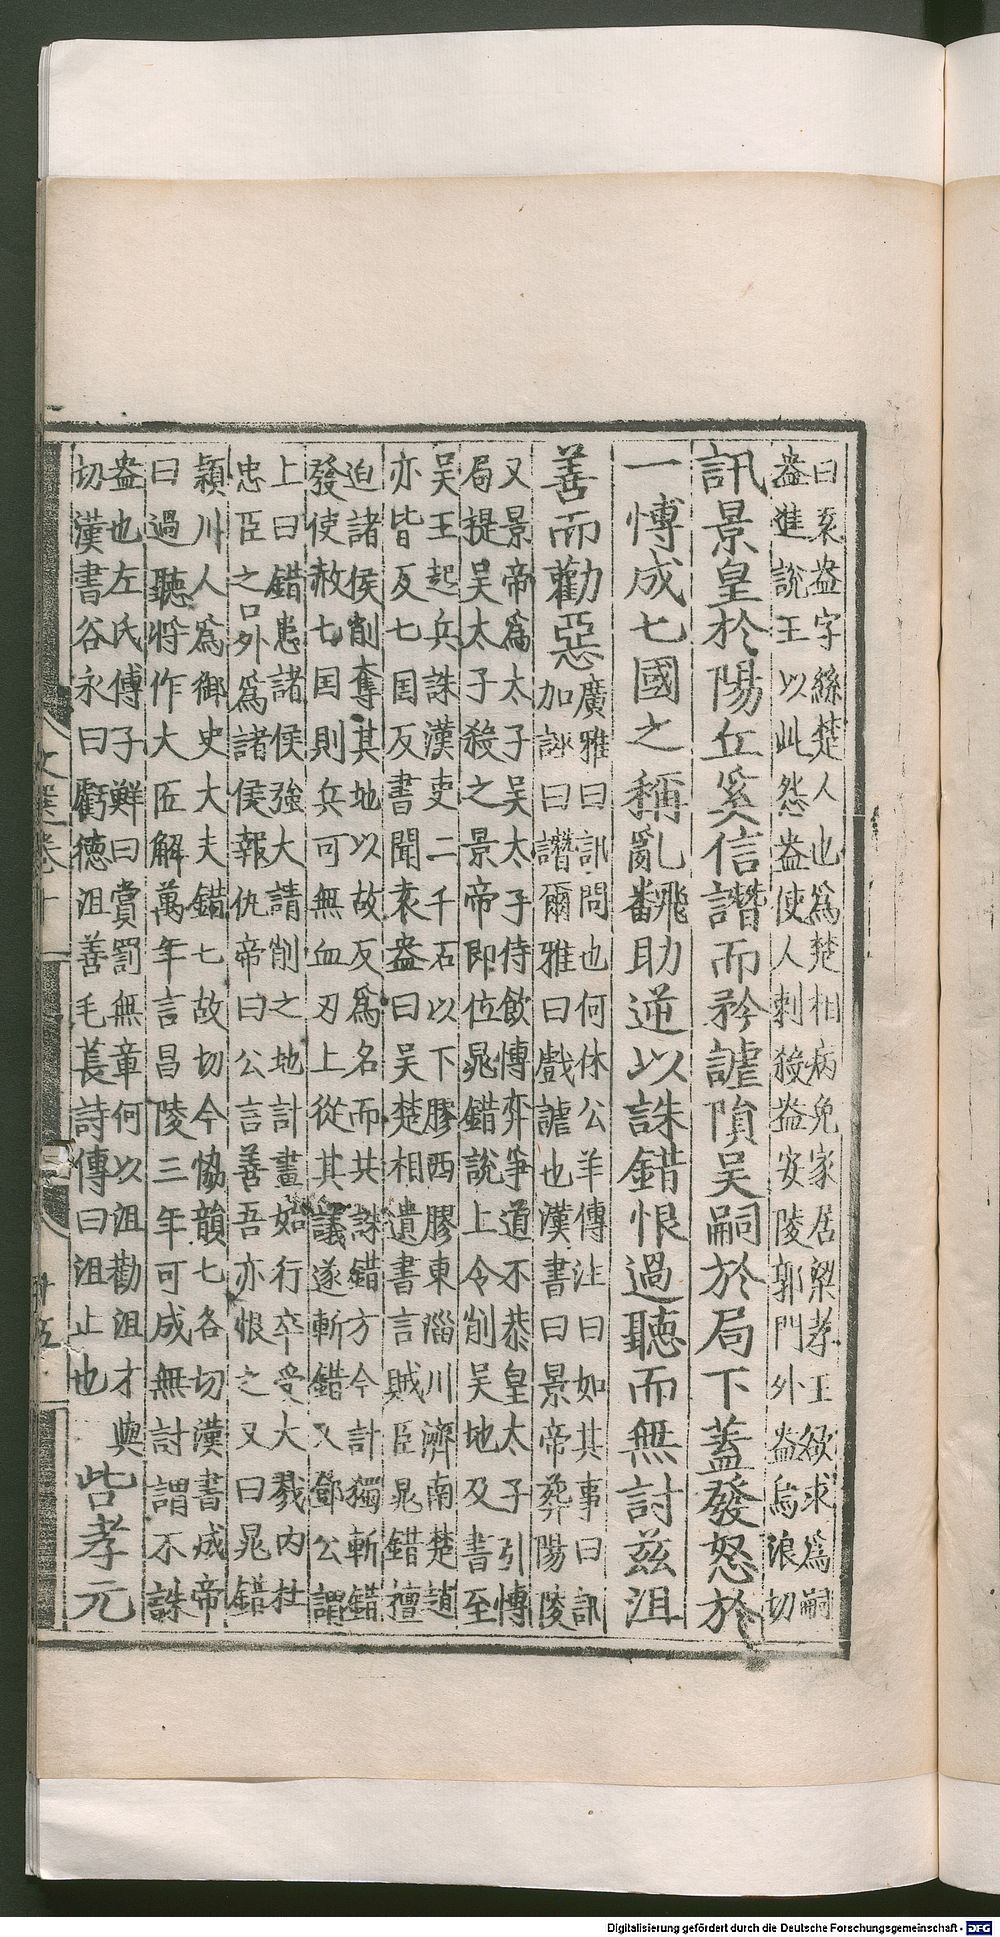 曰袁盎字絲楚人也爲楚相病免家居梁孝王欲求爲嗣
盎進說王以此怨盎使人刺殺盎安陵郭門外盎烏浪切
訊景皇於陽丘奚信譖而矜謔隕吳嗣於局下蓋發怒於
一愽成七國之稱亂飜助逆以誅錯恨過聽而無討兹沮
善而勸惡
廣雅曰訊問也何休公羊傳注曰如其事曰訊
加誣曰譖爾雅曰戲謔也漢書曰景帝葬陽陵
又景帝爲太子吳太子侍飲愽弈爭道不恭皇太子引愽
局提吳太子殺之景帝即位晁錯說上令削吳地及書至
吳王起兵誅漢吏二千石以下膠西膠東淄川濟南楚趙
亦皆反七囯反書聞袁盎曰吳楚相遺書言賊臣晁錯擅
迫諸侯削奪其地以故反爲名而共誅錯方今計獨斬錯
發使赦七囯則兵可無血刃上從其議遂斬錯又鄧公謂
上曰錯患諸侯強大請削之地計畫始行卒受大戮內杜
忠臣之口外爲諸侯報仇帝曰公言善吾亦恨之又曰晁錯
潁川人爲御史大夫錯七故切今恊韻七各切漢書成帝
曰過聽將作大匠解萬年言昌陵三年可成無討謂不誅
盎也左氏傳子鮮曰賞罰無章何以沮勸沮才與
切漢書谷永曰虧德沮善毛萇詩傳曰沮止也
呰孝元
文選卷十
卅五
Digitalisierung gefördert durch die Deutsche Forschungsgemeinschaft - DFG